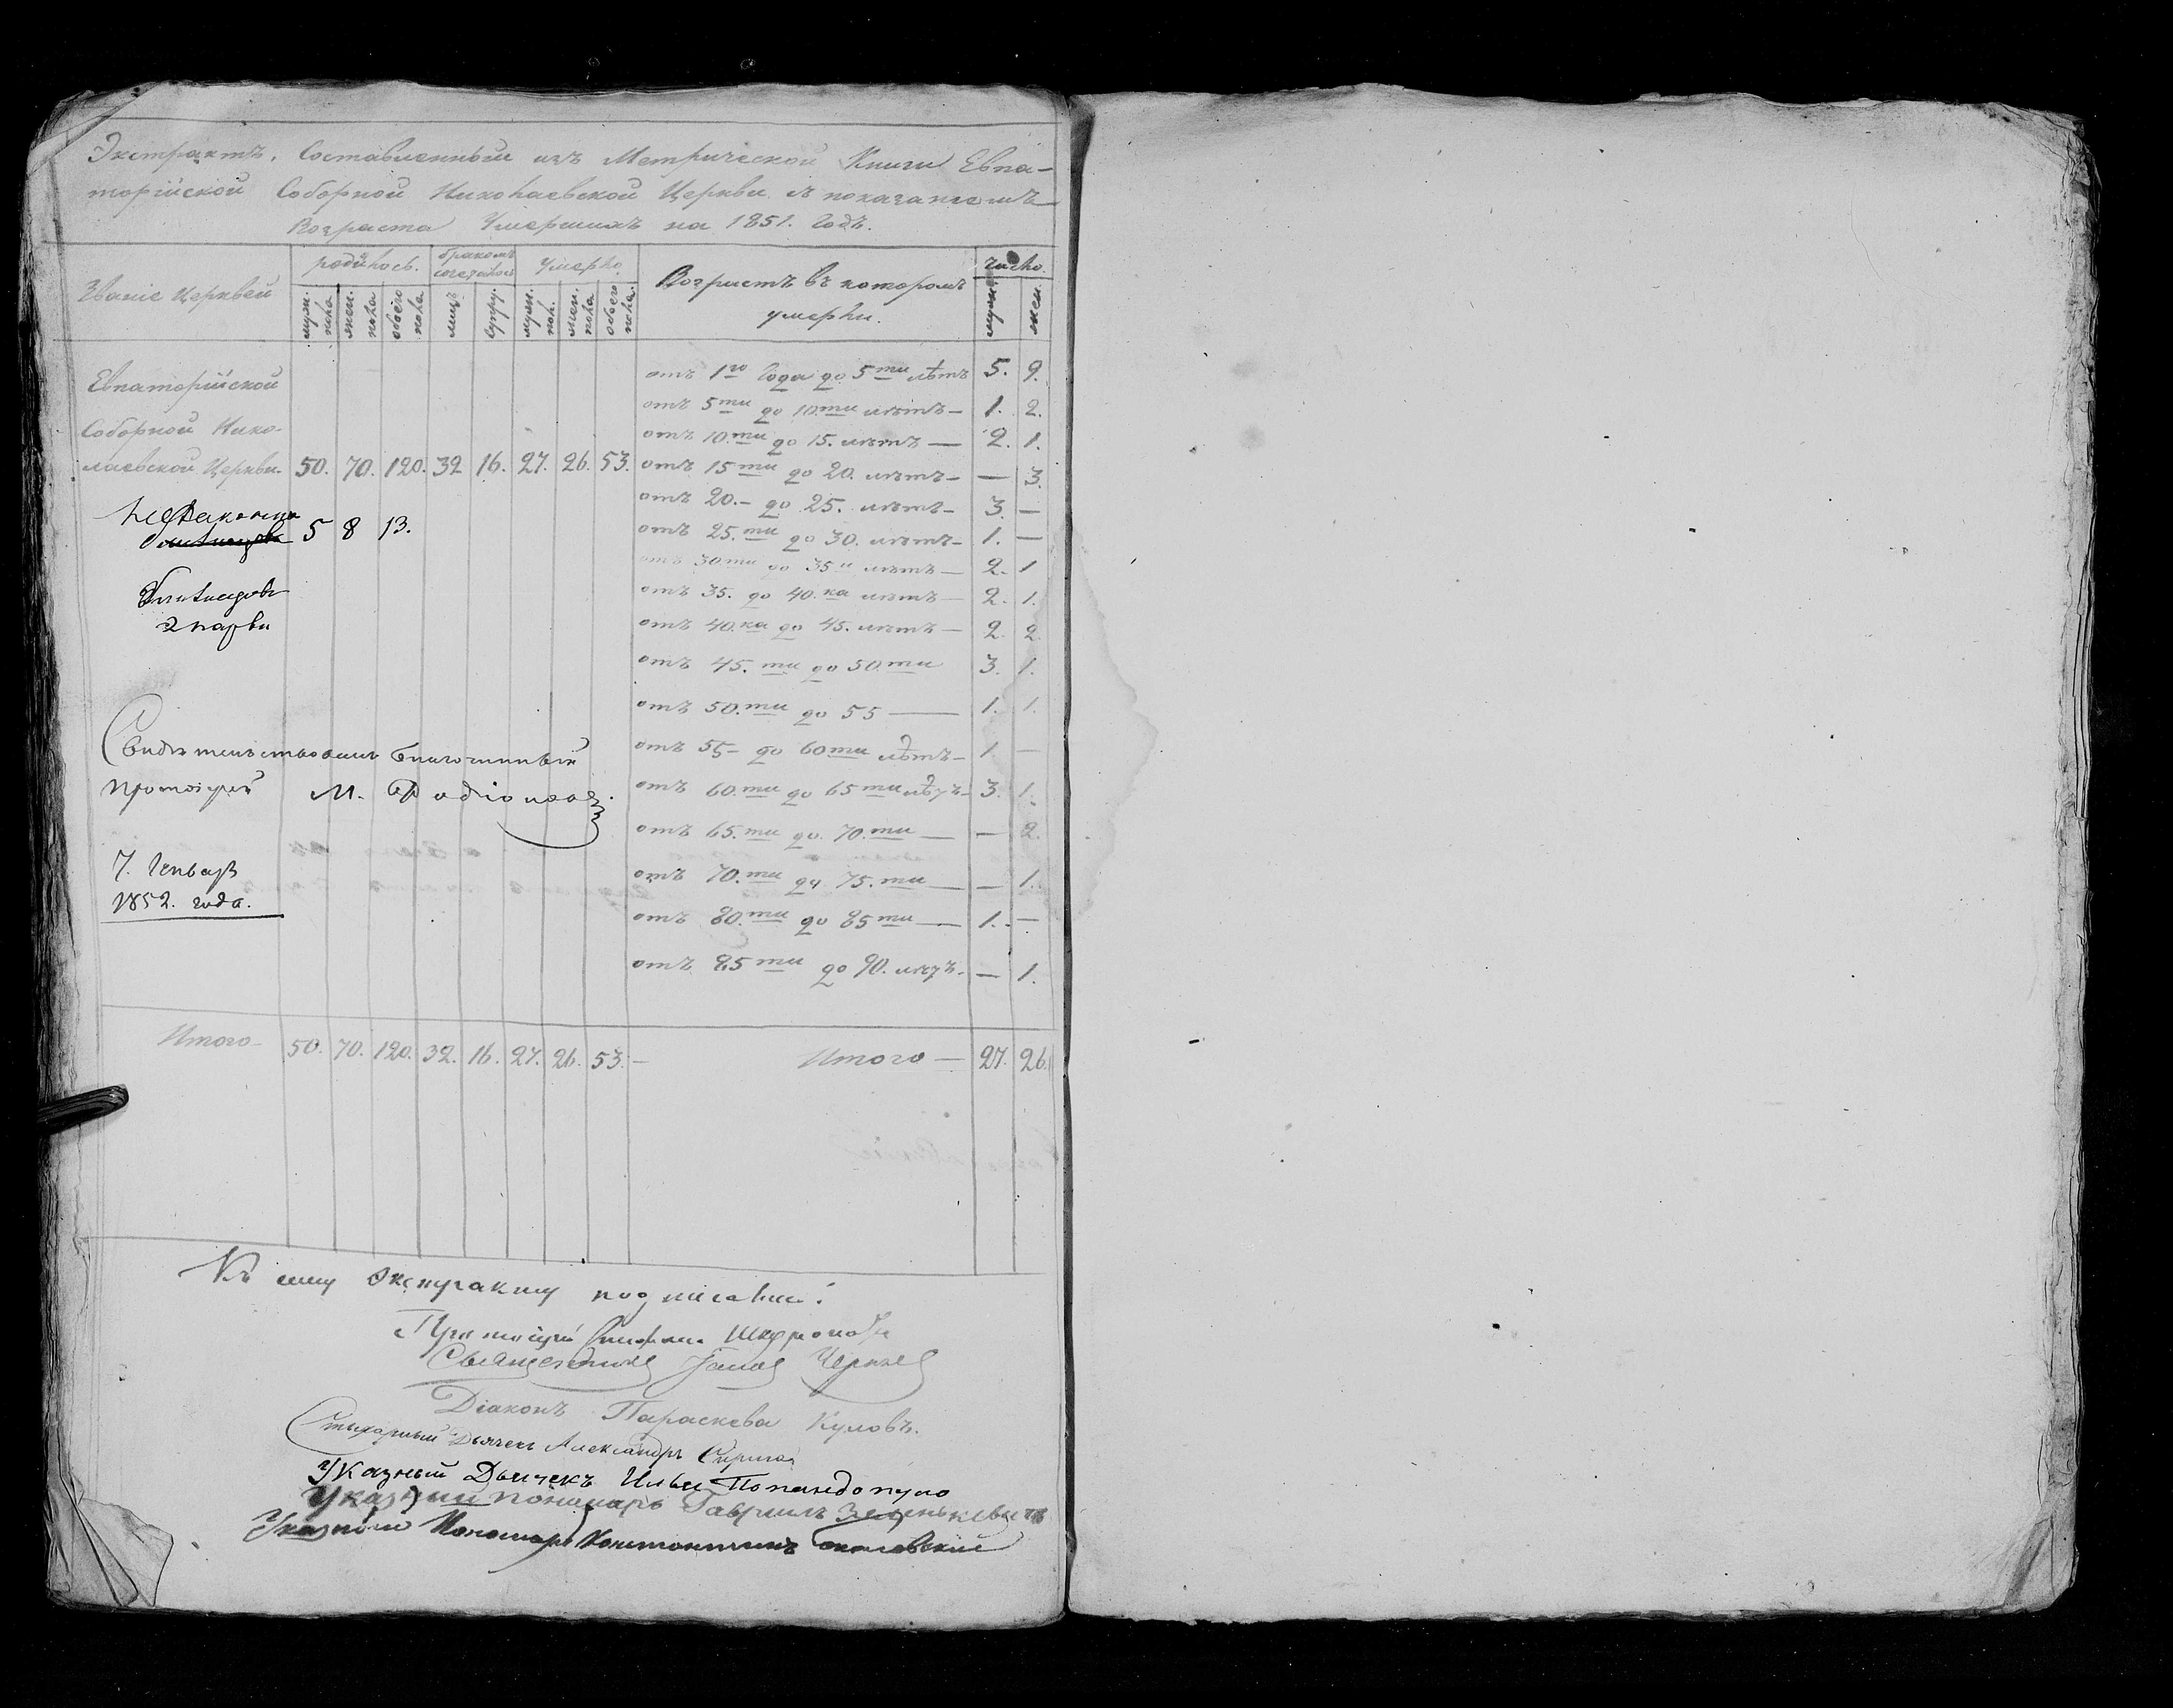 Экстрактъ, Составленный изъ Метрической Книги Евпа-
торійской Соборной Николаевской Церкви съ показаніемъ
Возраста Умершихъ на 1851. Годъ.
Званіе Церквей
родилось.
бракомъ сочеталось
умерло.
Возрастъ въ которомъ
умерли.
число.
муж. пола
жен. пола
обоего пола
лицъ
супру.
муж. пол.
жен. пола
обоего пола.
муж.
жен.
Евпаторійской
Соборной Нико-
лаевской Церкви- 50. 70. 120. 32 16. 27. 26. 53.
5 8 13.
Близнецовъ
2 пары
Свидѣтельствовалъ благочинный
протоіерей М. Родіоновъ
7. Генваря
1852. года.
отъ 1го Года до 5ти лѣтъ 5. 9.
отъ 5ти до 10.ти лѣтъ- 1. 2.
отъ 10.ти до 15. лѣтъ — 2. 1.
отъ 15ти до 20. лѣтъ- — 3.
отъ 20.- до 25. лѣтъ- 3. —
отъ 25.ти до 30. лѣтъ- 1. —
отъ 30ти до 35и лѣтъ — 2. 1
отъ 35. до 40.ка лѣтъ — 2. 1.
отъ 40.ка до 45. лѣтъ — 2. 2.
отъ 45.ти до 50.ти 3. 1.
отъ 50.ти до 55 — 1. 1.
отъ 55- до 60ти лѣтъ- 1. —
отъ 60.ти до 65ти лѣтъ- 3. 1.
отъ 65.ти до 70.ти — — 2.
отъ 70.ти до 75.ти — — 1.
отъ 80.ти до 85ти — 1. —
отъ 85ти до 90. лѣтъ- — 1.
Итого- 50. 70. 120. 32. 16. 27. 26. 53.-
Итого — 27. 26.
Къ сему экстракту подписались:
Протоіерей
Священникъ
Діаконъ Параскева Куловъ.
Стихарный Дьячекъ Александръ
Указный Дьячекъ Илья Попандопуло
Указный пономарь Гавріилъ Зеленкевичъ
Указный Пономарь Константинъ